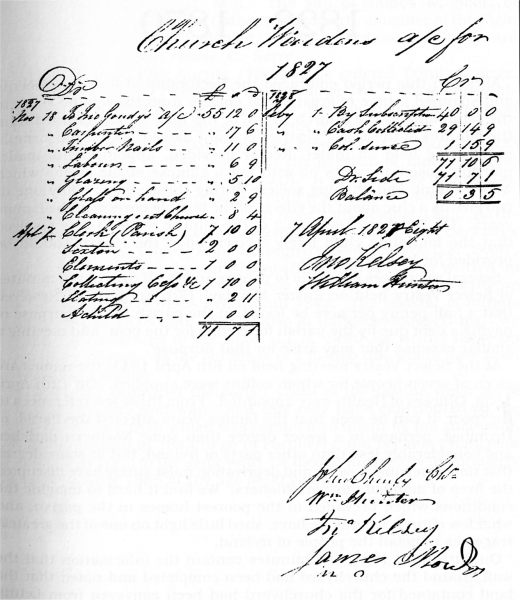 Church Wardens a/c for
1827
Dr
£ s d
1827
Nov 18 To Jno Goudys a/c 55 12 0
" Carpenter - - " 17 6
" Timber Nails - - " 11 0
" Labour - - - " 6 9
" Glazing - - - " 5 10
" Glass on hand " 2 9
" Cleaning out Church " 8 4
Apl 7 Clerk (Parish) 7 10 0
Sexton - - - 2 0 0
Elements - - - 1 0 0
Collecting Cess &c 1 10 0
" 2 11
A child - - 1 0 0
71 7 1
Cr
1828
Feby 1 By Subscription 40 0 0
" " Cash Collected 29 14 9
" " Col. since 1 15 9
71 10 6
Dr. Side 71 7 1
Balance 0 3 5
7 April 182 Eight
Jno Kelsey
William Hunter
John
Wm Hunter
Jno Kelsey
James